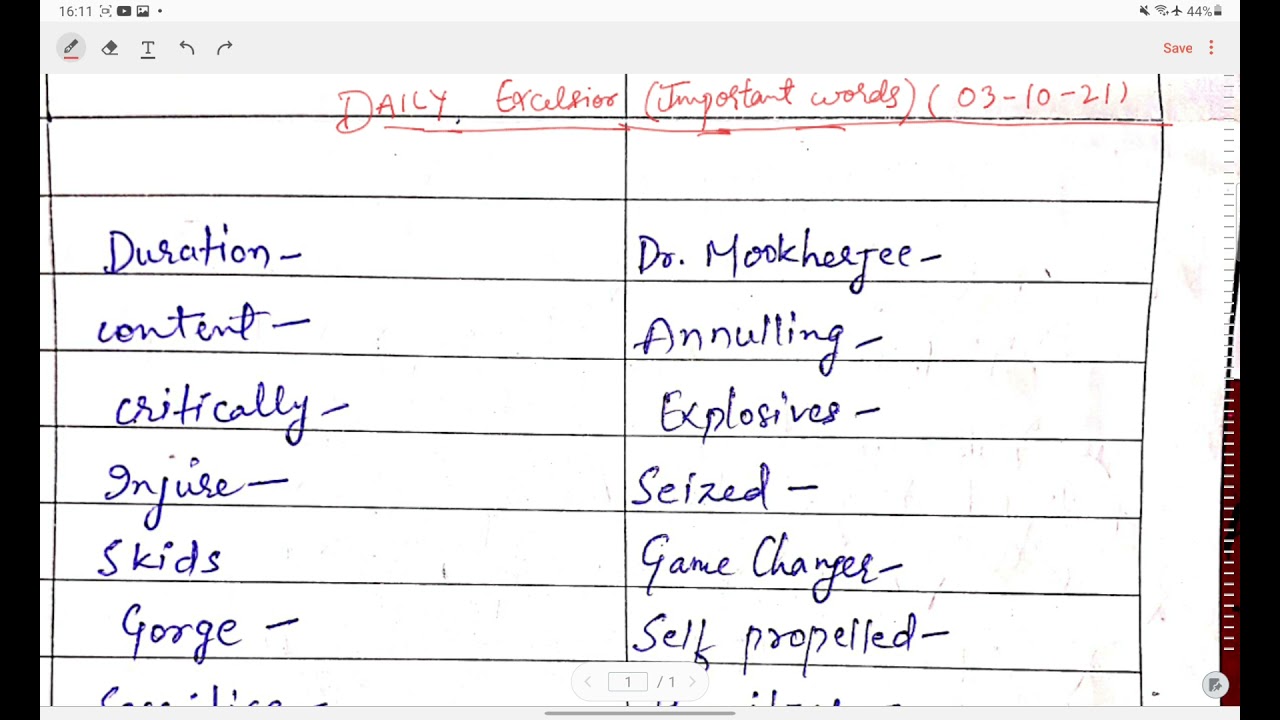 16:11
44%
T
Save
DAILY Excelsior (Important words) (03-10-21)
Duration - Dr. Mookherjee -
content - Annulling -
critically - Explosives -
Injure - Seized -
Skids Game Changer -
Gorge - Self propelled -
1 / 1